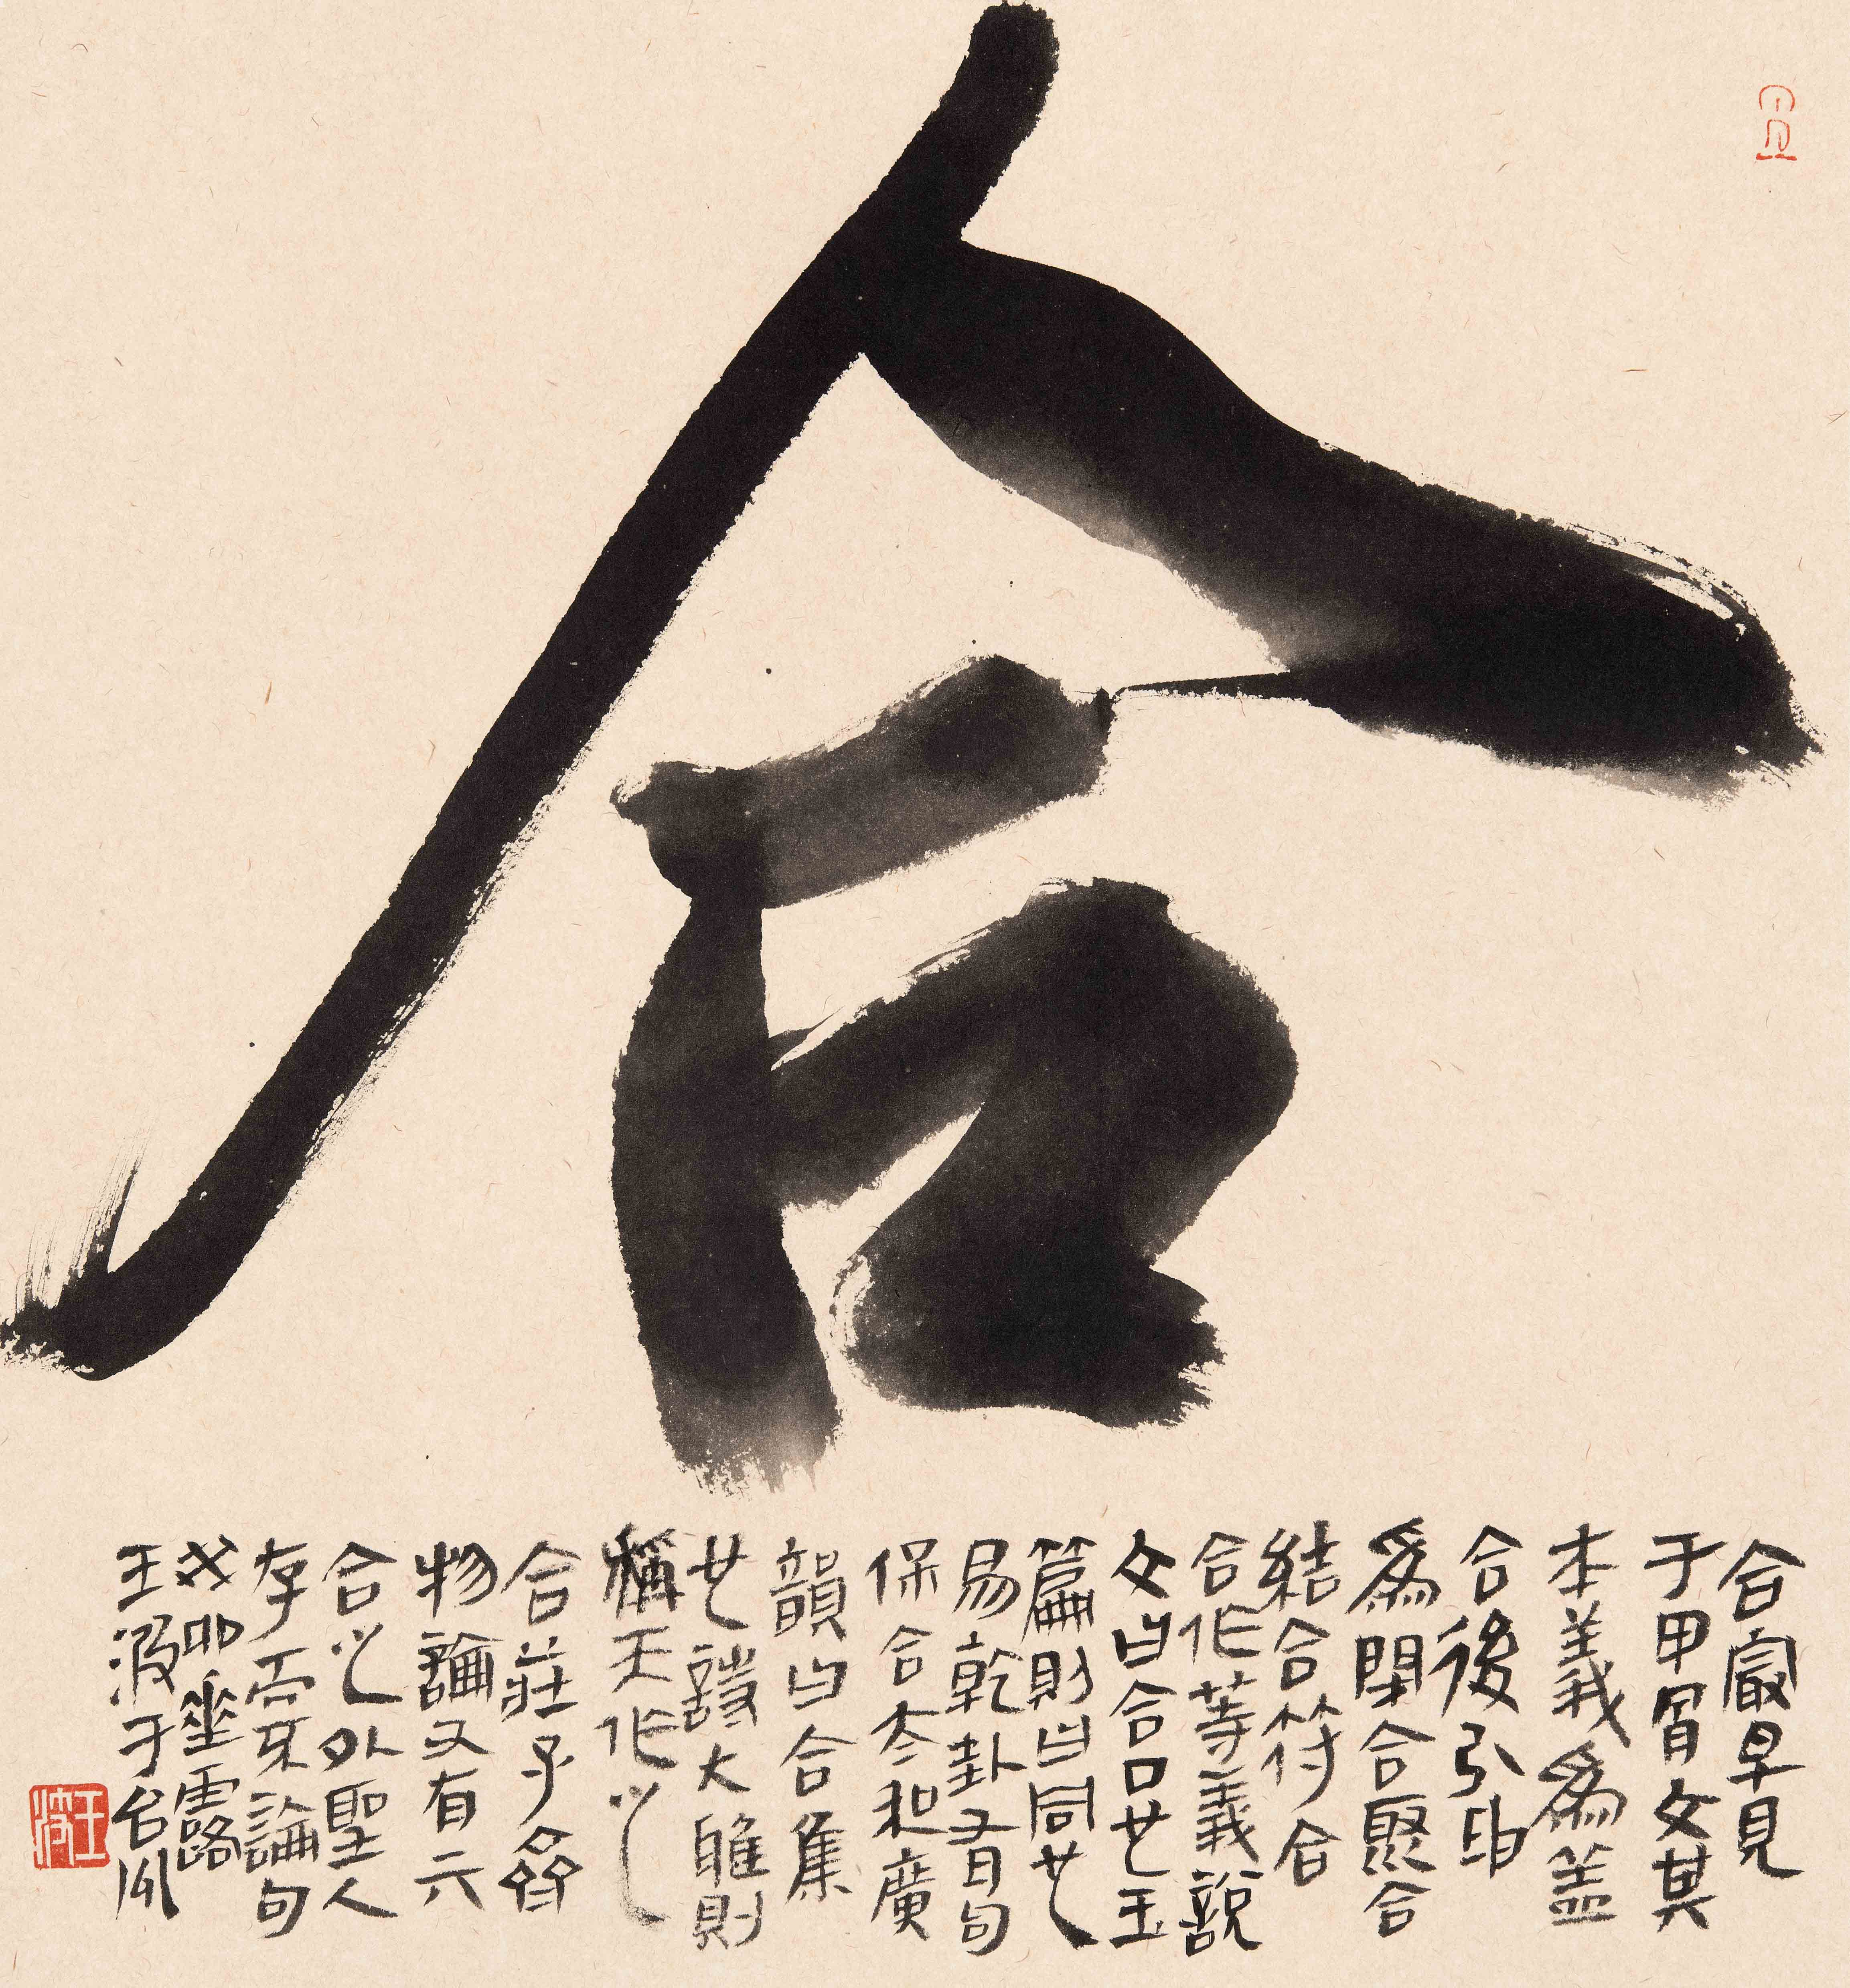 合
合最早見
于甲骨文其
本義爲蓋
合後引申
爲閉合聚合
結合符合
合作等義說
文曰合口也玉
篇則曰同也
易乾卦有句
保合太和廣
韻曰合集
也詩大雅則
稱天作之
合莊子齊
物論又有六
合之外聖人
存而不論句
癸卯露
王波于台州
王波